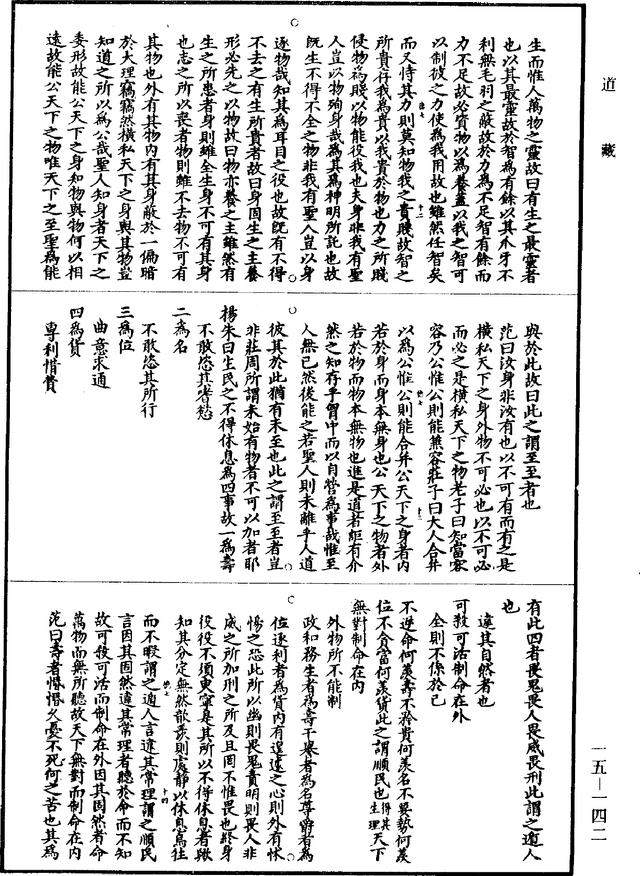 道藏
生而惟人萬物之靈故曰有生之最靈者
也以其最靈故於智為有餘以其爪牙不
利無毛羽之蔽故於力為不足智有餘而
力不足故必資物以為養蓋以我之智可
以制彼之力使為我用故也雖然任智矣
而又恃其力則莫知物我之貴賤故智之
所貴存我為貴以我貴於物也力之所賤
侵物為賤以物能役我也夫身非我有聖
人豈以物殉身哉為其為神明所託也故
既生不得不全之物非我有聖人豈以身
逐物哉知其為耳目之役也故既有不得
不去之有生所貴者故曰身固生之主養
形必先之以物故曰物亦養之主雖然有
生之所患者身則雖全生身不可有其身
也志之所以喪者物則雖不去物不可有
其物也外有其物內有其身蔽於一偏暗
於大理竊竊然橫私天下之身與其物豈
知道之所以為公哉聖人知身者天下之
委形故能公天下之身知物與物何以相
遠故能公天下之物唯天下之至聖為能
與於此故曰此之謂至至者也
范曰汝身非汝有也以不可有而有之是
橫私天下之身外物不可必也以不可必
而必之是橫私天下之物老子曰知常容
容乃公惟公則能兼容莊子曰大人合并
以為公惟公則能合并公天下之身者內
若於身而身本無身也公天下之物者外
若於物而物本無物也進是道者詎有介
然之知存乎胷中而以自營為事哉惟至
人無已然後能之若聖人則未離乎人道
彼其於此猶有未至也此之謂至至者豈
非莊周所謂未始有物者不可以加者耶
楊朱曰生民之不得休息為四事故一為壽
不敢恣其嗜慾
二為名
不敢恣其所行
三為位
曲意求通
四為貨
專利惜費
有此四者畏鬼畏人畏威畏刑此謂之遁人
也
違其自然者也
可殺可活制命在外
全則不係於己
不逆命何羨壽不矜貴何羨名不要勢何羨
位不貪富何羨貨此之謂順民也得其生理天下
無對制命在內
外物所不能制
政和務生者為壽干譽者為名尊爵者為
位逐利者為貨內有遑遽之心則外有怵
惕之恐此所以幽則畏鬼責明則畏人非
威之所加刑之所及且罔不惟畏也終身
役役不須臾寧是其所以不得休息者歟
知其分定無然歆羨則處靜以休息烏往
而不暇謂之遁人言違其常理謂之順民
言因其固然違其常理者聽於命而不知
故可殺可活而制命在外因其固然者命
萬物而無所聽故天下無對而制命在內
范曰壽者惛惛久憂不死何之苦也其為
一五—一四二